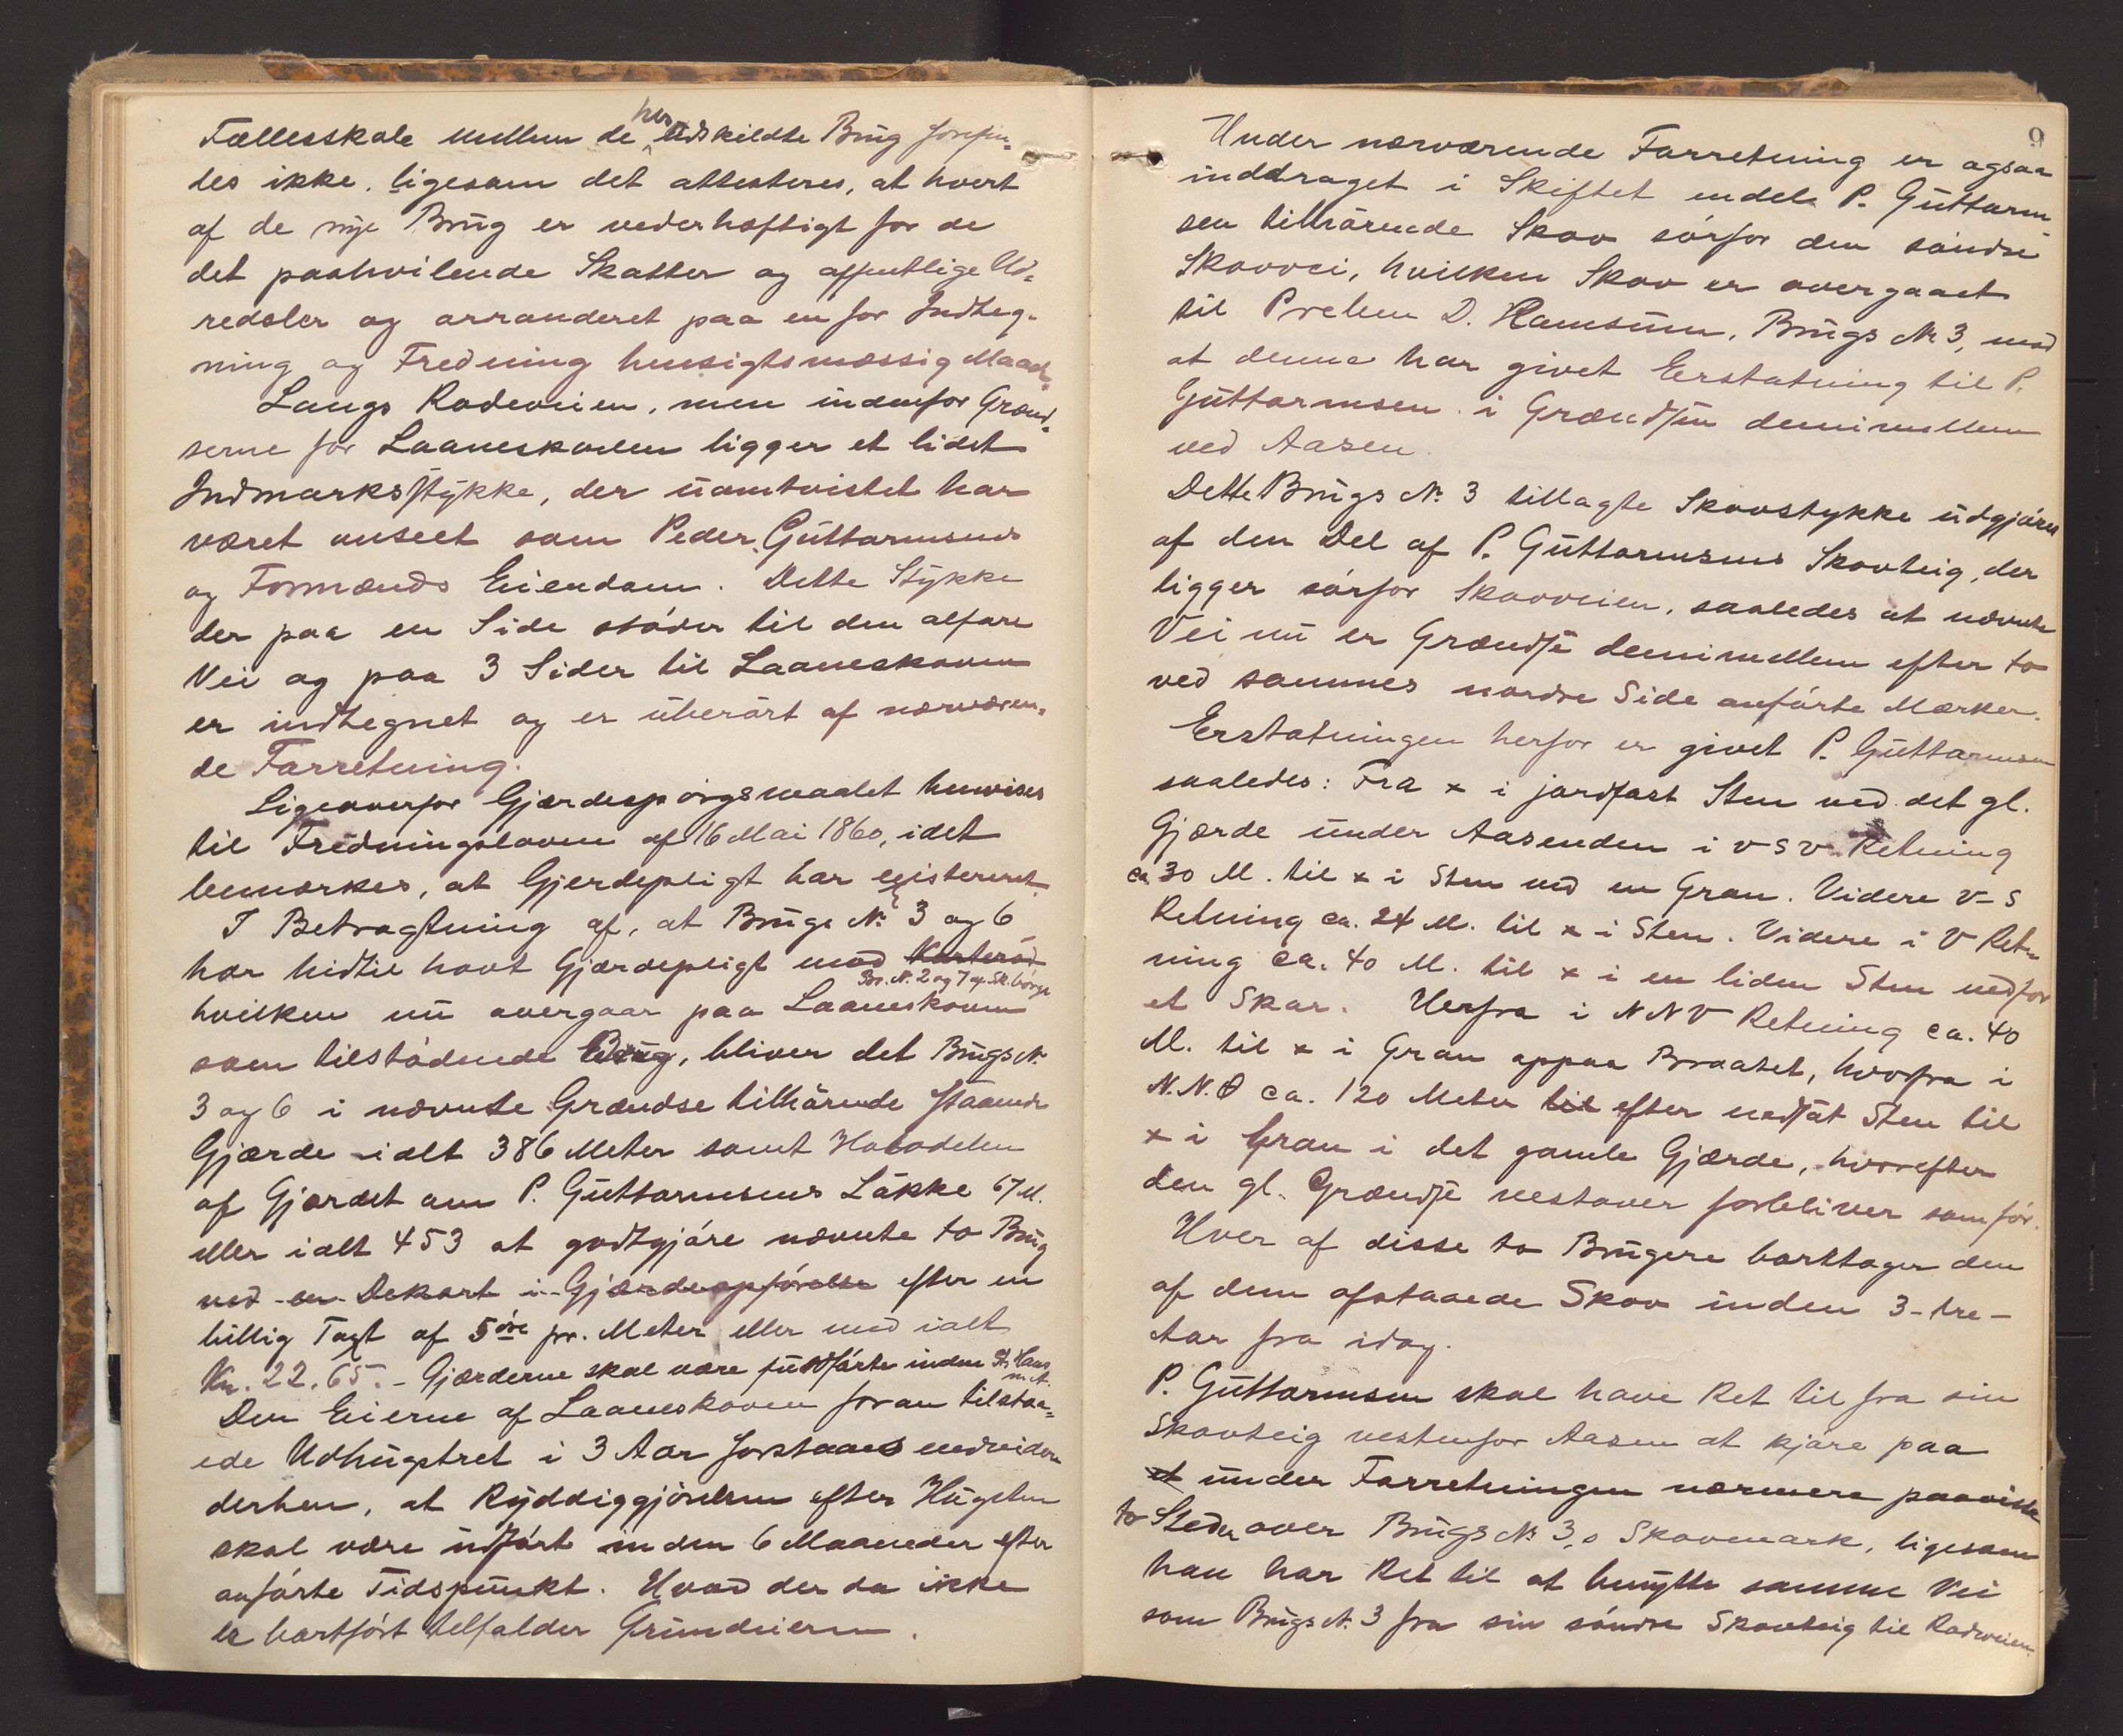 Fællesskale mellem de her udskildte Brug forefin-
des ikke, ligesom det attesteres, at hvert
af de nye Brug er vederhæftigt for de
det paahvilende Skatter og offentlige Ud-
redsler og arronderet paa en for Indheg-
ning og Fredning hensigtsmæssig Maade.
Langs Radeveien, men indenfor Grænd-
serne for Laaneskoven ligger et lidet
Indmarksstykke, der uomtvistet har
været anseet som Peder Guttormsens
og Formænds Eiendom. Dette Stykke
der paa en Side støder til den alfare
Vei og paa 3 Sider til Laaneskoven
er indhegnet og er uberørt af nærværen-
de Forretning.
Ligeoverfor Gjærdespørgsmaalet henvises
til Fredningsloven af 16 Mai 1860, idet
bemærkes, at Gjerdepligt har existeret.
I Betragtning af, at Brugs No 3 og 6
har hidtil havt Gjærdepligt mod Korterød
Br. N. 2 og 7 af Sk.børge
hvilken nu overgaar paa Laaneskoven
som tilstødende Brug, bliver det Brugs N.
3 og 6 i nævnte Grændse tilhørende staaende
Gjærde ialt 386 Meter samt Halvdelen
af Gjærdet om P. Guttormsens Løkke 67 M.
eller ialt 453 at godtgjøre nævnte to Brug
ved en Dekort i Gjærdeopførelse efter en
billig Taxt af 5 øre pr. Meter eller med ialt
Kr. 22.65. - Gjærderne skal være fuldførte inden St. Hans
n. A.
Den Eierne af Laaneskoven foran tilstaa-
ede Udhugstret i 3 Aar forstaaes endvidere
derhen, at Ryddiggjørelsen efter Hugsten
skal være udført inden 6 Maaneder efter
anførte Tidspunkt. Hvad der da ikke
er bortført tilfalder Grundeieren.
9
Under nærværende Forretning er ogsaa
inddraget i Skiftet endel P. Guttorm-
sen tilhørende Skov sørfor den søndre
Skovvei, hvilken Skov er overgaaet
til Preben D. Hamsunn, Brugs No 3, mod
at denne har givet Erstatning til P.
Guttormsen i Grændsen demimellem
ved Aasen.
Dette Brugs No. 3 tillagte Skovstykke udgjøres
af den Del af P. Guttormsens Skovteig, der
ligger sørfor Skovveien, saaledes at nævnte
Vei nu er Grændse demimellem efter to
ved sammes nordre Side anførte Mærker.
Erstatningen herfor er givet P. Guttormsen
saaledes: Fra x i jordfast Sten ved det gl.
Gjærde under Aasenden i V S V Retning
ca 30 M. til x i Sten ved en Gran. Videre V-S
Retning ca. 24 M. til x i Sten. Videre i V Ret-
ning ca. 40 M. til x i en liden Sten nedfor
et Skar. Herfra i N N V Retning ca. 40
M. til x i Gran oppaa Braatet, hvorfra i
N.N.Ø ca. 120 Meter til efter nedsat Sten til
x i Gran i det gamle Gjærde, hvorefter
den gl. Grændse vestover forbliver som før.
Hver af disse to Brugere borttager den
af dem afstaaede Skov inden 3-tre-
Aar fra idag.
P. Guttormsen skal have Ret til fra sin
Skovteig vestenfor Aasen at kjøre paa
et under Forretningen nærmere paaviste
to Steder over Brugs No 3,s Skovmark, ligesom
han har Ret til at benytte samme Vei
som Brugs N. 3 fra sin søndre Skovteig til Radeveien.